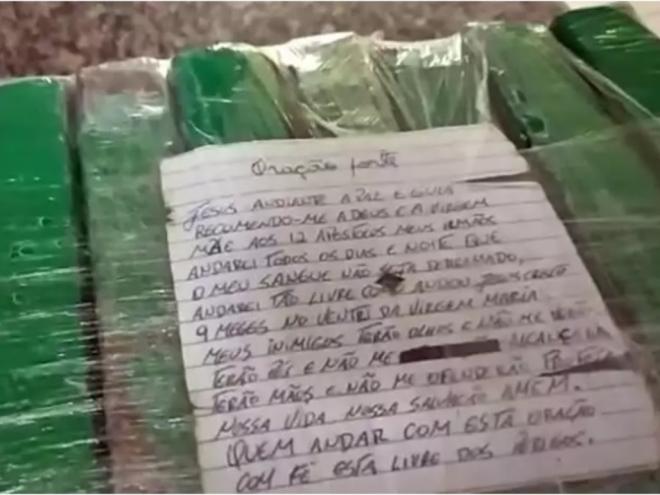 Oração forte
JESUS ANDIANTE A PAZ E GUIA
RECUMENDO-ME A DEUS E A VIRGEM
MÃE AOS 12 APÓSTOLOS MEUS IRMÃOS
ANDAREI TODOS OS DIAS E NOITE QUE
O MEU SANGUE NÃO SEJA DERRAMADO,
ANDAREI TÃO LIVRE ANDOU CRISTO
9 MESES NO VENTRE DA VIRGEM MARIA.
MEUS INIMIGOS TERÃO OLHOS E NÃO ME VERÃO
TERÃO PÉS E NÃO ME
TERÃO MÃOS E NÃO ME OFENDERÃO
NOSSA VIDA NOSSA SALVAÇÃO AMEM.
QUEM ANDAR COM ESTA ORAÇÃO
COM FÉ ESTA LIVRE DOS PERIGOS.